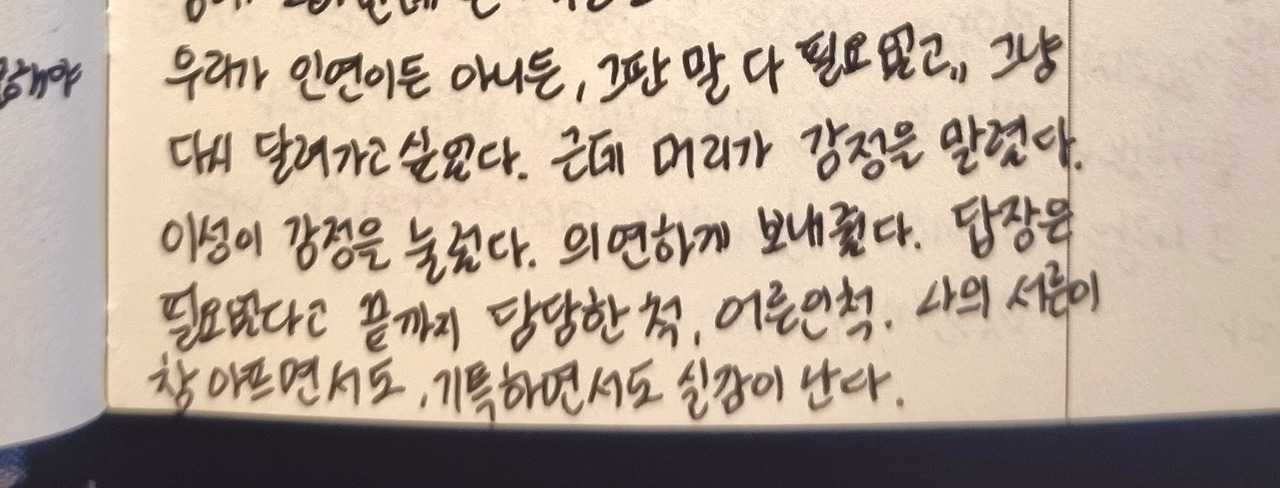 우리가 인연이든 아니든, 그딴 말 다 필요 없고,, 그냥
다시 달려가고 싶었다. 근데 머리가 감정을 말렸다.
이성이 감정을 눌렀다. 의연하게 보내줬다. 답장은
필요없다고 끝까지 당당한 척, 어른인척. 나의 서른이
참 아프면서도, 기특하면서도 실감이 난다.